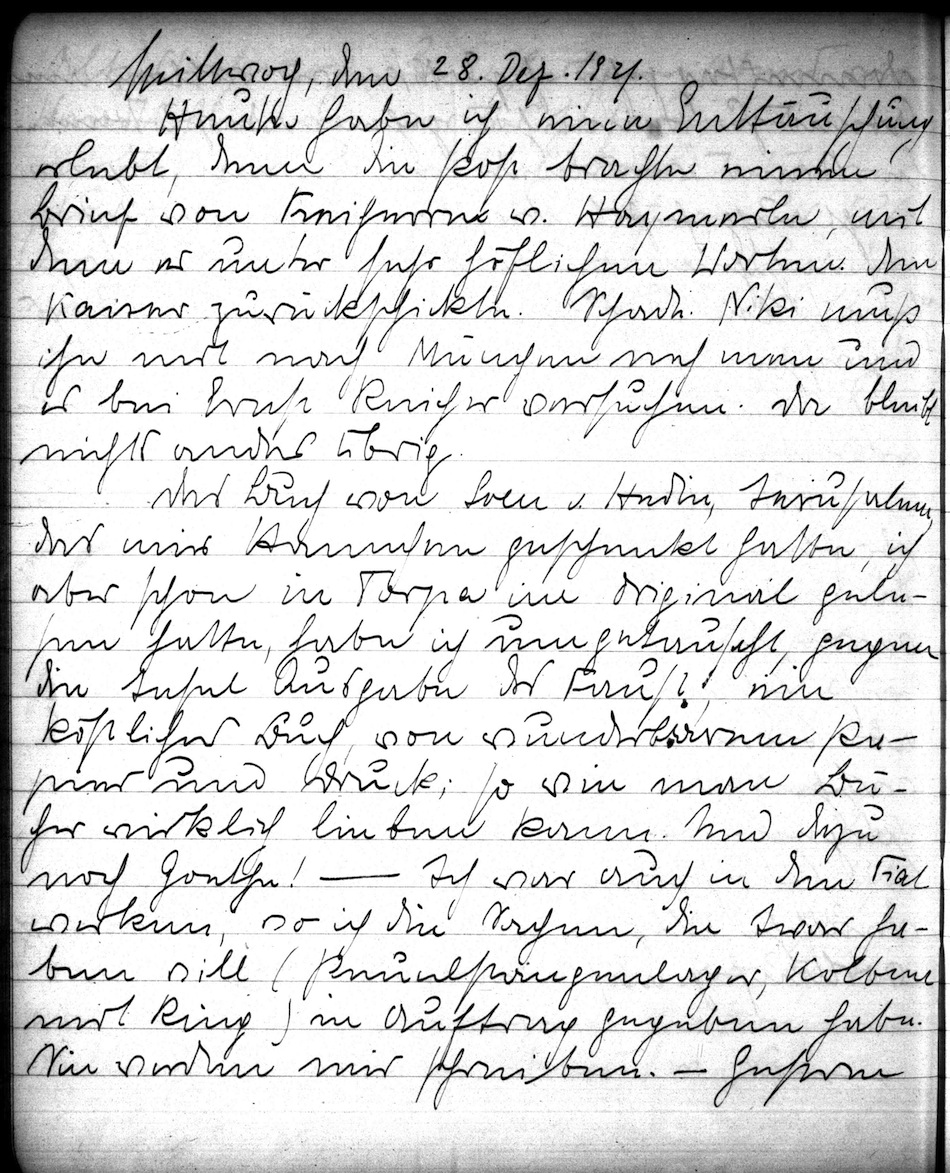 Mittwoch, den 28. Dez. 1921.
Heute habe ich eine Enttäuschung
erlebt, denn die Post brachte einen
Brief von Freiherrn v. Haymerle, mit
dem er unter sehr höflichen Worten den
Kaiser zurückschickte. Schade. Niki muß
ihn mit nach München nehmen und
es bei Ernst Reicher versuchen. Da bleibt
nichts anders übrig.
Das Buch von Sven v. Hedin, Jerusalem,
das mir Hannchen geschenkt hatte, ich
aber schon in Torpa im Original gele-
sen hatte, habe ich umgetauscht, gegen
die Insel Ausgabe des Faust; ein
köstliches Buch, von wunderbarem Pa-
pier und Druck; so wie man Bü-
cher wirklich lieben kann. Und dazu
noch Goethe! — Ich war auch in den Fiat
werken, wo ich die Sachen, die Iwar ha-
ben will (Pleuelstangenlager, Kolben
mit Ring) in Auftrag gegeben habe.
Sie werden mir schreiben. — Gestern